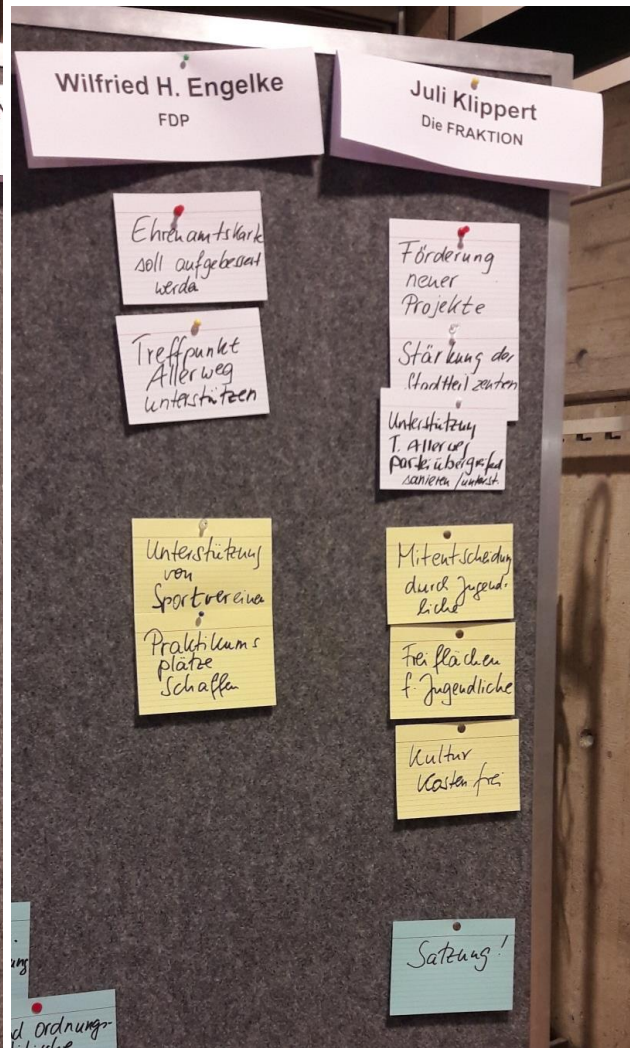 Wilfried H. Engelke
FDP
Ehrenamtskarte
soll aufgebessert
werde
Treffpunkt
Allerweg
unterstützen
Unterstützung
von
Sportvereinen
Praktikums
plätze
schaffen
Juli Klippert
Die FRAKTION
Förderung
neuer
Projekte
Stärkung der
Stadtteilzentren
Unterstützung
T. Allerweg
parteiübergreifend
sanieren/unterst.
Mitentscheidung
durch Jugend-
liche
Freiflächen
f. Jugendliche
Kultur
Kosten frei
Satzung!
ung
d ordnungs-